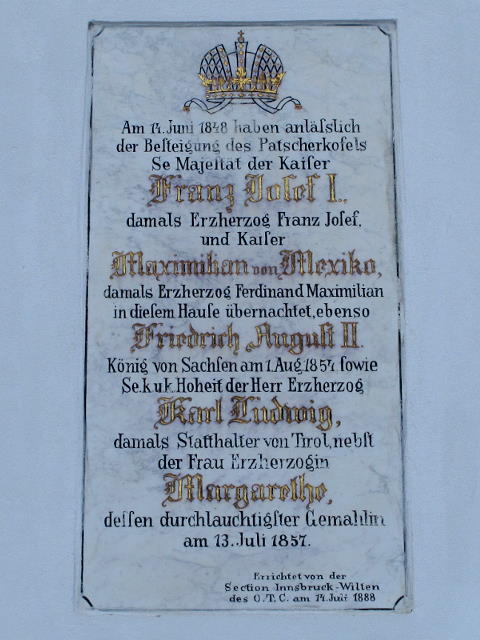 Am 14. Juni 1848 haben anläſslich
der Beſteigung des Patscherkofels
Se Majeſtät der Kaiſer
Franz Joſef I.,
damals Erzherzog Franz Joſef,
und Kaiſer
Maximilian von Mexiko,
damals Erzherzog Ferdinand Maximilian
in dieſem Hauſe übernachtet, ebenso
Friedrich Auguſt II.
König von Sachſen am 1. Aug. 1854 ſowie
Se. k. u k. Hoheit der Herr Erzherzog
Karl Ludwig,
damals Statthalter von Tirol, nebſt
der Frau Erzherzogin
Margarethe,
deſſen durchlauchtigſter Gemahlin
am 13. Juli 1857.
Errichtet von der
Section Innsbruck-Wilten
des O. T. C. am 14. Juli 1888